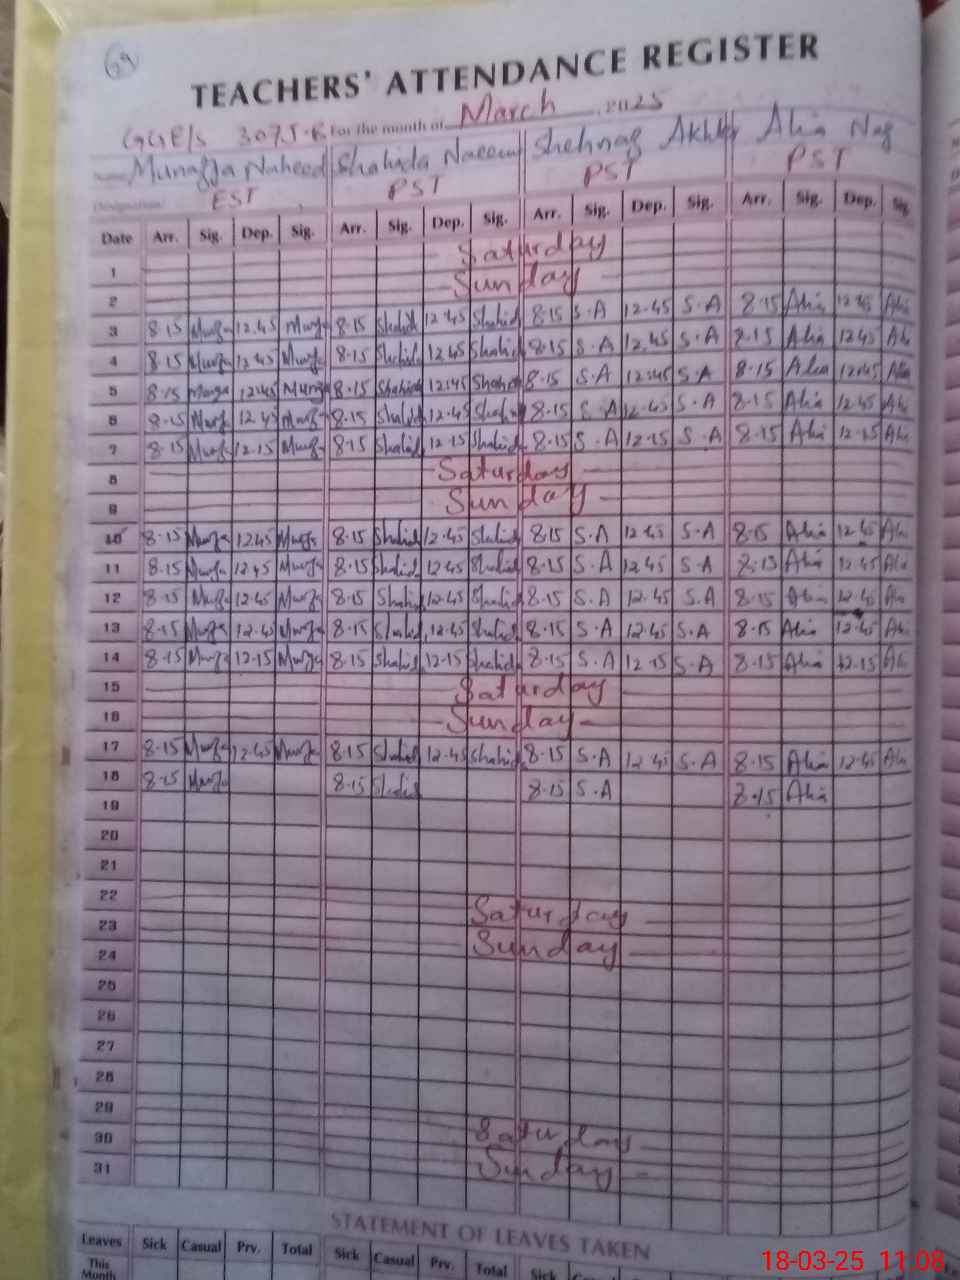 69
TEACHERS' ATTENDANCE REGISTER
GGE/S 307J.B For the month of March 2025
Munazza Naheed Shahida Naeem Shehnaz Akhtar Alia Naz
Designation EST PST PST PST
Date Arr. Sig. Dep. Sig. Arr. Sig. Dep. Sig. Arr. Sig. Dep. Sig. Arr. Sig. Dep. Sig.
1 Saturday
2 Sunday
3 8.15 12.45 8.15 Shahid 12.45 Shahid 8.15 S.A 12.45 S.A 8.15 Alia 12.45 Alia
4 8.15 12.45 8.15 Shahid 12.45 Shahid 8.15 S.A 12.45 S.A 8.15 Alia 12.45 Ali
5 8.15 12.45 8.15 Shahid 12.45 Shahid 8.15 S.A 12.45 S.A 8.15 Alia 12.45 Alia
6 8.15 12.45 8.15 Shahid 12.45 Shahid 8.15 S.A 12.45 S.A 8.15 Alia 12.45 Ali
7 8.15 12.15 8.15 Shahid 12.15 Shahid 8.15 S.A 12.15 S.A 8.15 Alia 12.15 Ali
8 Saturday
9 Sunday
10 8.15 12.45 8.15 Shahid 12.45 Shahid 8.15 S.A 12.45 S.A 8.15 Alia 12.45 Ali
11 8.15 12.45 8.15 Shahid 12.45 Shahid 8.15 S.A 12.45 S.A 8.15 Alia 12.45 Ali
12 8.15 12.45 8.15 Shahid 12.45 Shahid 8.15 S.A 12.45 S.A 8.15 Alia 12.45 Ali
13 8.15 12.45 8.15 Shahid 12.45 Shahid 8.15 S.A 12.45 S.A 8.15 Alia 12.45 Ali
14 8.15 12.15 8.15 Shahid 12.15 Shahid 8.15 S.A 12.15 S.A 8.15 Alia 12.15 Ali
15 Saturday
16 Sunday
17 8.15 12.45 8.15 Shahid 12.45 Shahid 8.15 S.A 12.45 S.A 8.15 Alia 12.45 Ali
18 8.15 8.15 Shahid 8.15 S.A 8.15 Alia
19
20
21
22 Saturday
23 Sunday
24
25
26
27
28
29 Saturday
30 Sunday
31
STATEMENT OF LEAVES TAKEN
Leaves Sick Casual Prv. Total Sick Casual Prv. Total Sick
This Month
18-03-25 11:08